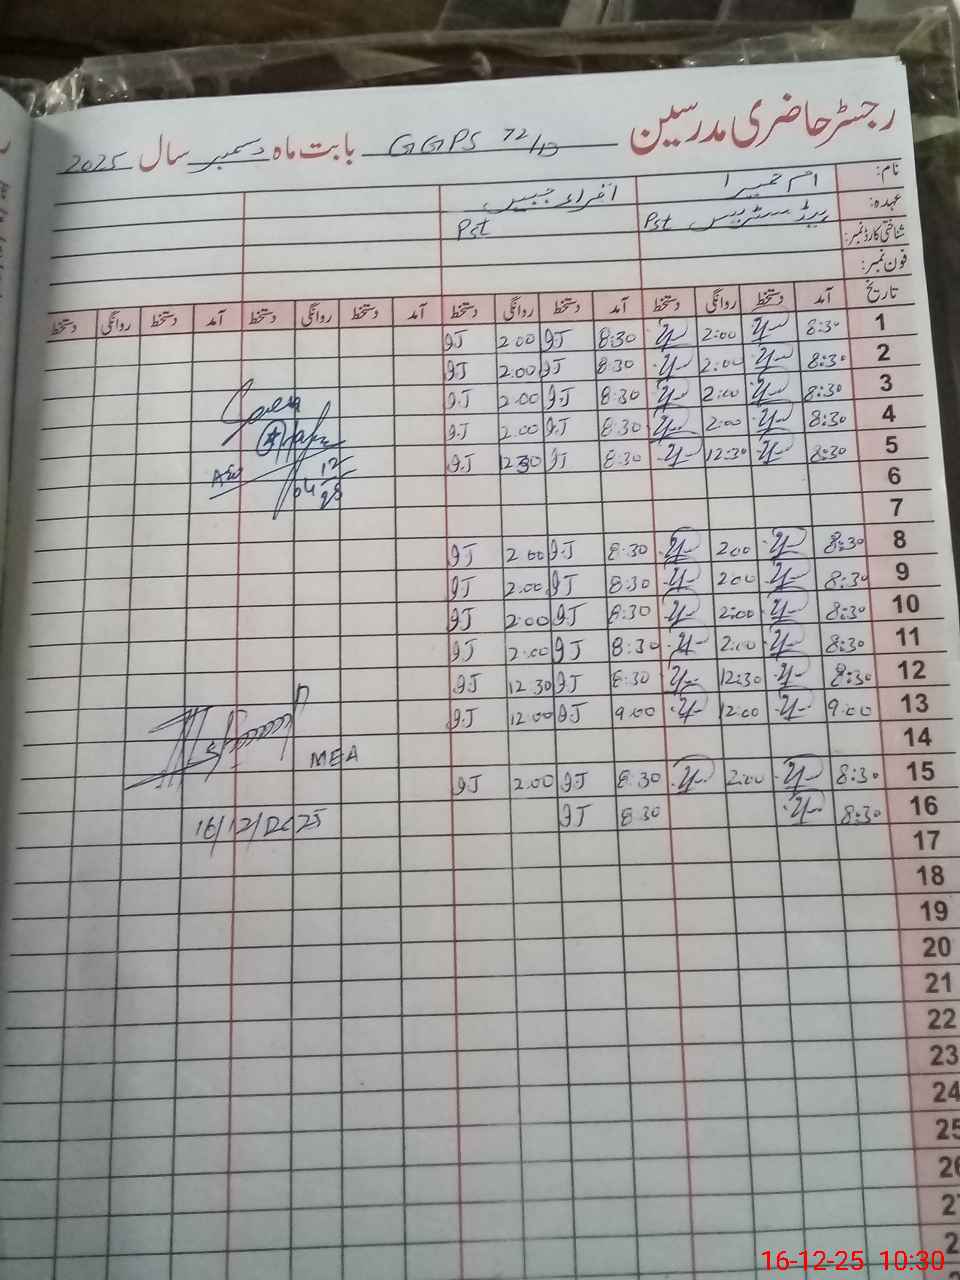 رجسٹر حاضری مدرسین GGPS 72/13 بابت ماہ دسمبر سال 2025
نام: ام حمیرا
عہدہ: ہیڈ مسٹریس Pst Pst
شناختی کارڈ نمبر:
فون نمبر:
تاریخ آمد دستخط روانگی دستخط آمد دستخط روانگی دستخط آمد دستخط روانگی دستخط آمد دستخط روانگی دستخط
1 8:30 2:00 8:30 IJ 2.00 IJ
2 8:30 2:00 8:30 IJ 2.00 IJ
3 8:30 2:00 8:30 IJ 2.00 IJ
4 8:30 2:00 8:30 IJ 2.00 IJ
5 8:30 12:30 8:30 IJ 12.30 IJ
6
7
8 8:30 2:00 8:30 IJ 2.00 IJ
9 8:30 2:00 8:30 IJ 2.00 IJ
10 8:30 2:00 8:30 IJ 2.00 IJ
11 8:30 2:00 8:30 IJ 2.00 IJ
12 8:30 12:30 8:30 IJ 12.30 IJ
13 9:00 12:00 9:00 IJ 12.00 IJ
14
15 8:30 2:00 8:30 IJ 2.00 IJ
16 8:30 8:30 IJ
17
18
19
20
21
22
23
24
25
26
MEA
16/12/2025
16-12-25 10:30